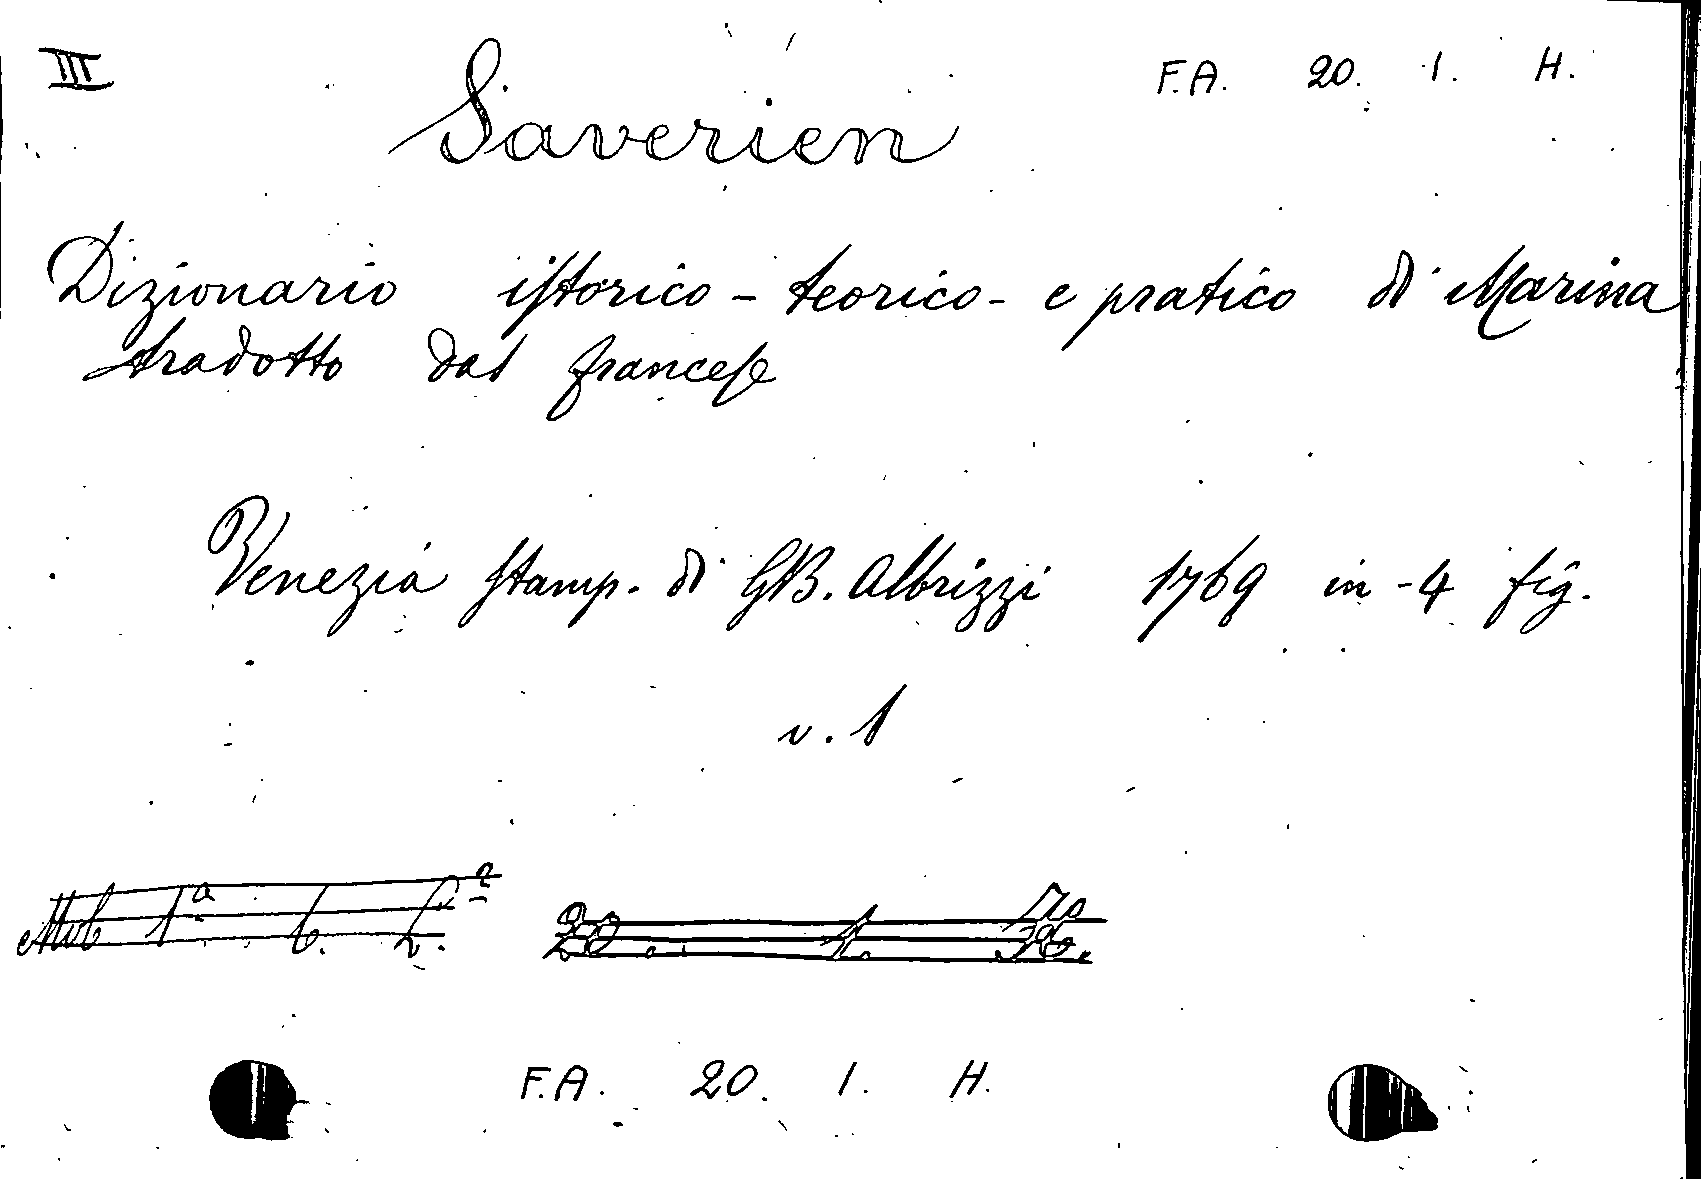 III F.A. 20. 1. H.
Saverien
Dizionario istorico - teorico - e pratico di Marina
tradotto dal francese
Venezia stamp. di GB. Albrizzi 1769 in-4 fig.
v. 1
20. 1.
F.A. 20. 1. H.